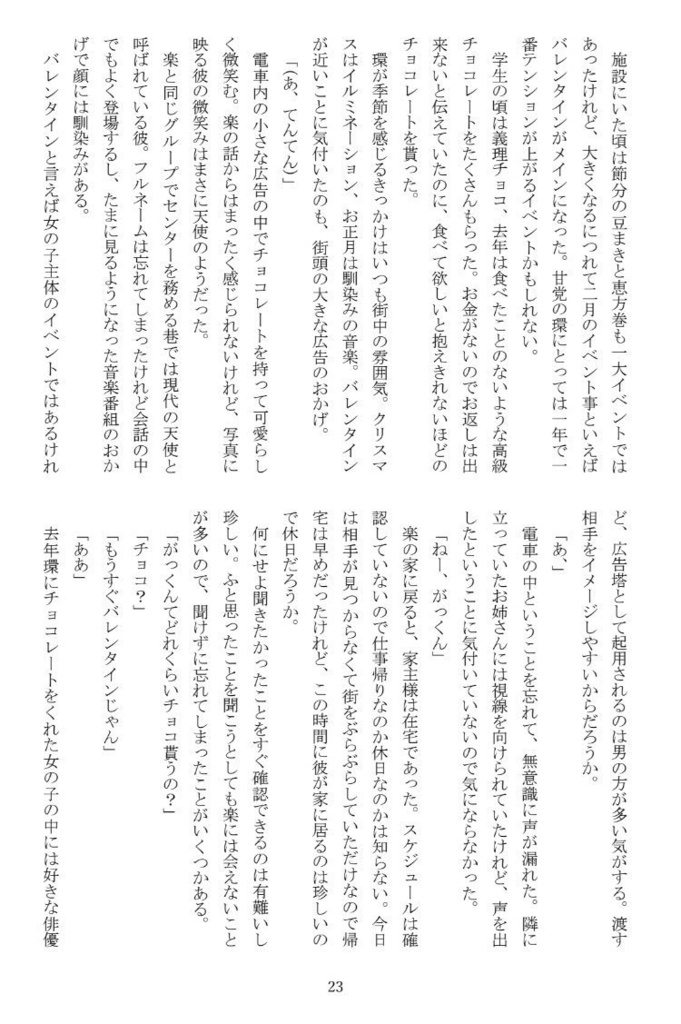 施設にいた頃は節分の豆まきと恵方巻も一大イベントでは
あったけれど、大きくなるにつれて二月のイベント事といえば
バレンタインがメインになった。甘党の環にとっては一年で一
番テンションが上がるイベントかもしれない。
　学生の頃は義理チョコ、去年は食べたことのないような高級
チョコレートをたくさんもらった。お金がないのでお返しは出
来ないと伝えていたのに、食べて欲しいと抱えきれないほどの
チョコレートを貰った。
　環が季節を感じるきっかけはいつも街中の雰囲気。クリスマ
スはイルミネーション、お正月は馴染みの音楽。バレンタイン
が近いことに気付いたのも、街頭の大きな広告のおかげ。
「(あ、てんてん)」
　電車内の小さな広告の中でチョコレートを持って可愛らし
く微笑む。楽の話からはまったく感じられないけれど、写真に
映る彼の微笑みはまさに天使のようだった。
　楽と同じグループでセンターを務める巷では現代の天使と
呼ばれている彼。フルネームは忘れてしまったけれど会話の中
でもよく登場するし、たまに見るようになった音楽番組のおか
げで顔には馴染みがある。
　バレンタインと言えば女の子主体のイベントではあるけれ
ど、広告塔として起用されるのは男の方が多い気がする。渡す
相手をイメージしやすいからだろうか。
「あ、」
　電車の中ということを忘れて、無意識に声が漏れた。隣に
立っていたお姉さんには視線を向けられていたけれど、声を出
したということに気付いていないので気にならなかった。
「ねー、がっくん」
　楽の家に戻ると、家主様は在宅であった。スケジュールは確
認していないので仕事帰りなのか休日なのかは知らない。今日
は相手が見つからなくて街をぶらぶらしていただけなので帰
宅は早めだったけれど、この時間に彼が家に居るのは珍しいの
で休日だろうか。
　何にせよ聞きたかったことをすぐ確認できるのは有難いし
珍しい。ふと思ったことを聞こうとしても楽には会えないこと
が多いので、聞けずに忘れてしまったことがいくつかある。
「がっくんてどれくらいチョコ貰うの？」
「チョコ？」
「もうすぐバレンタインじゃん」
「ああ」
　去年環にチョコレートをくれた女の子の中には好きな俳優
23